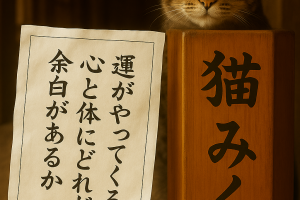 運がやってくる
心と体にどれだ
余白があるか
猫みく